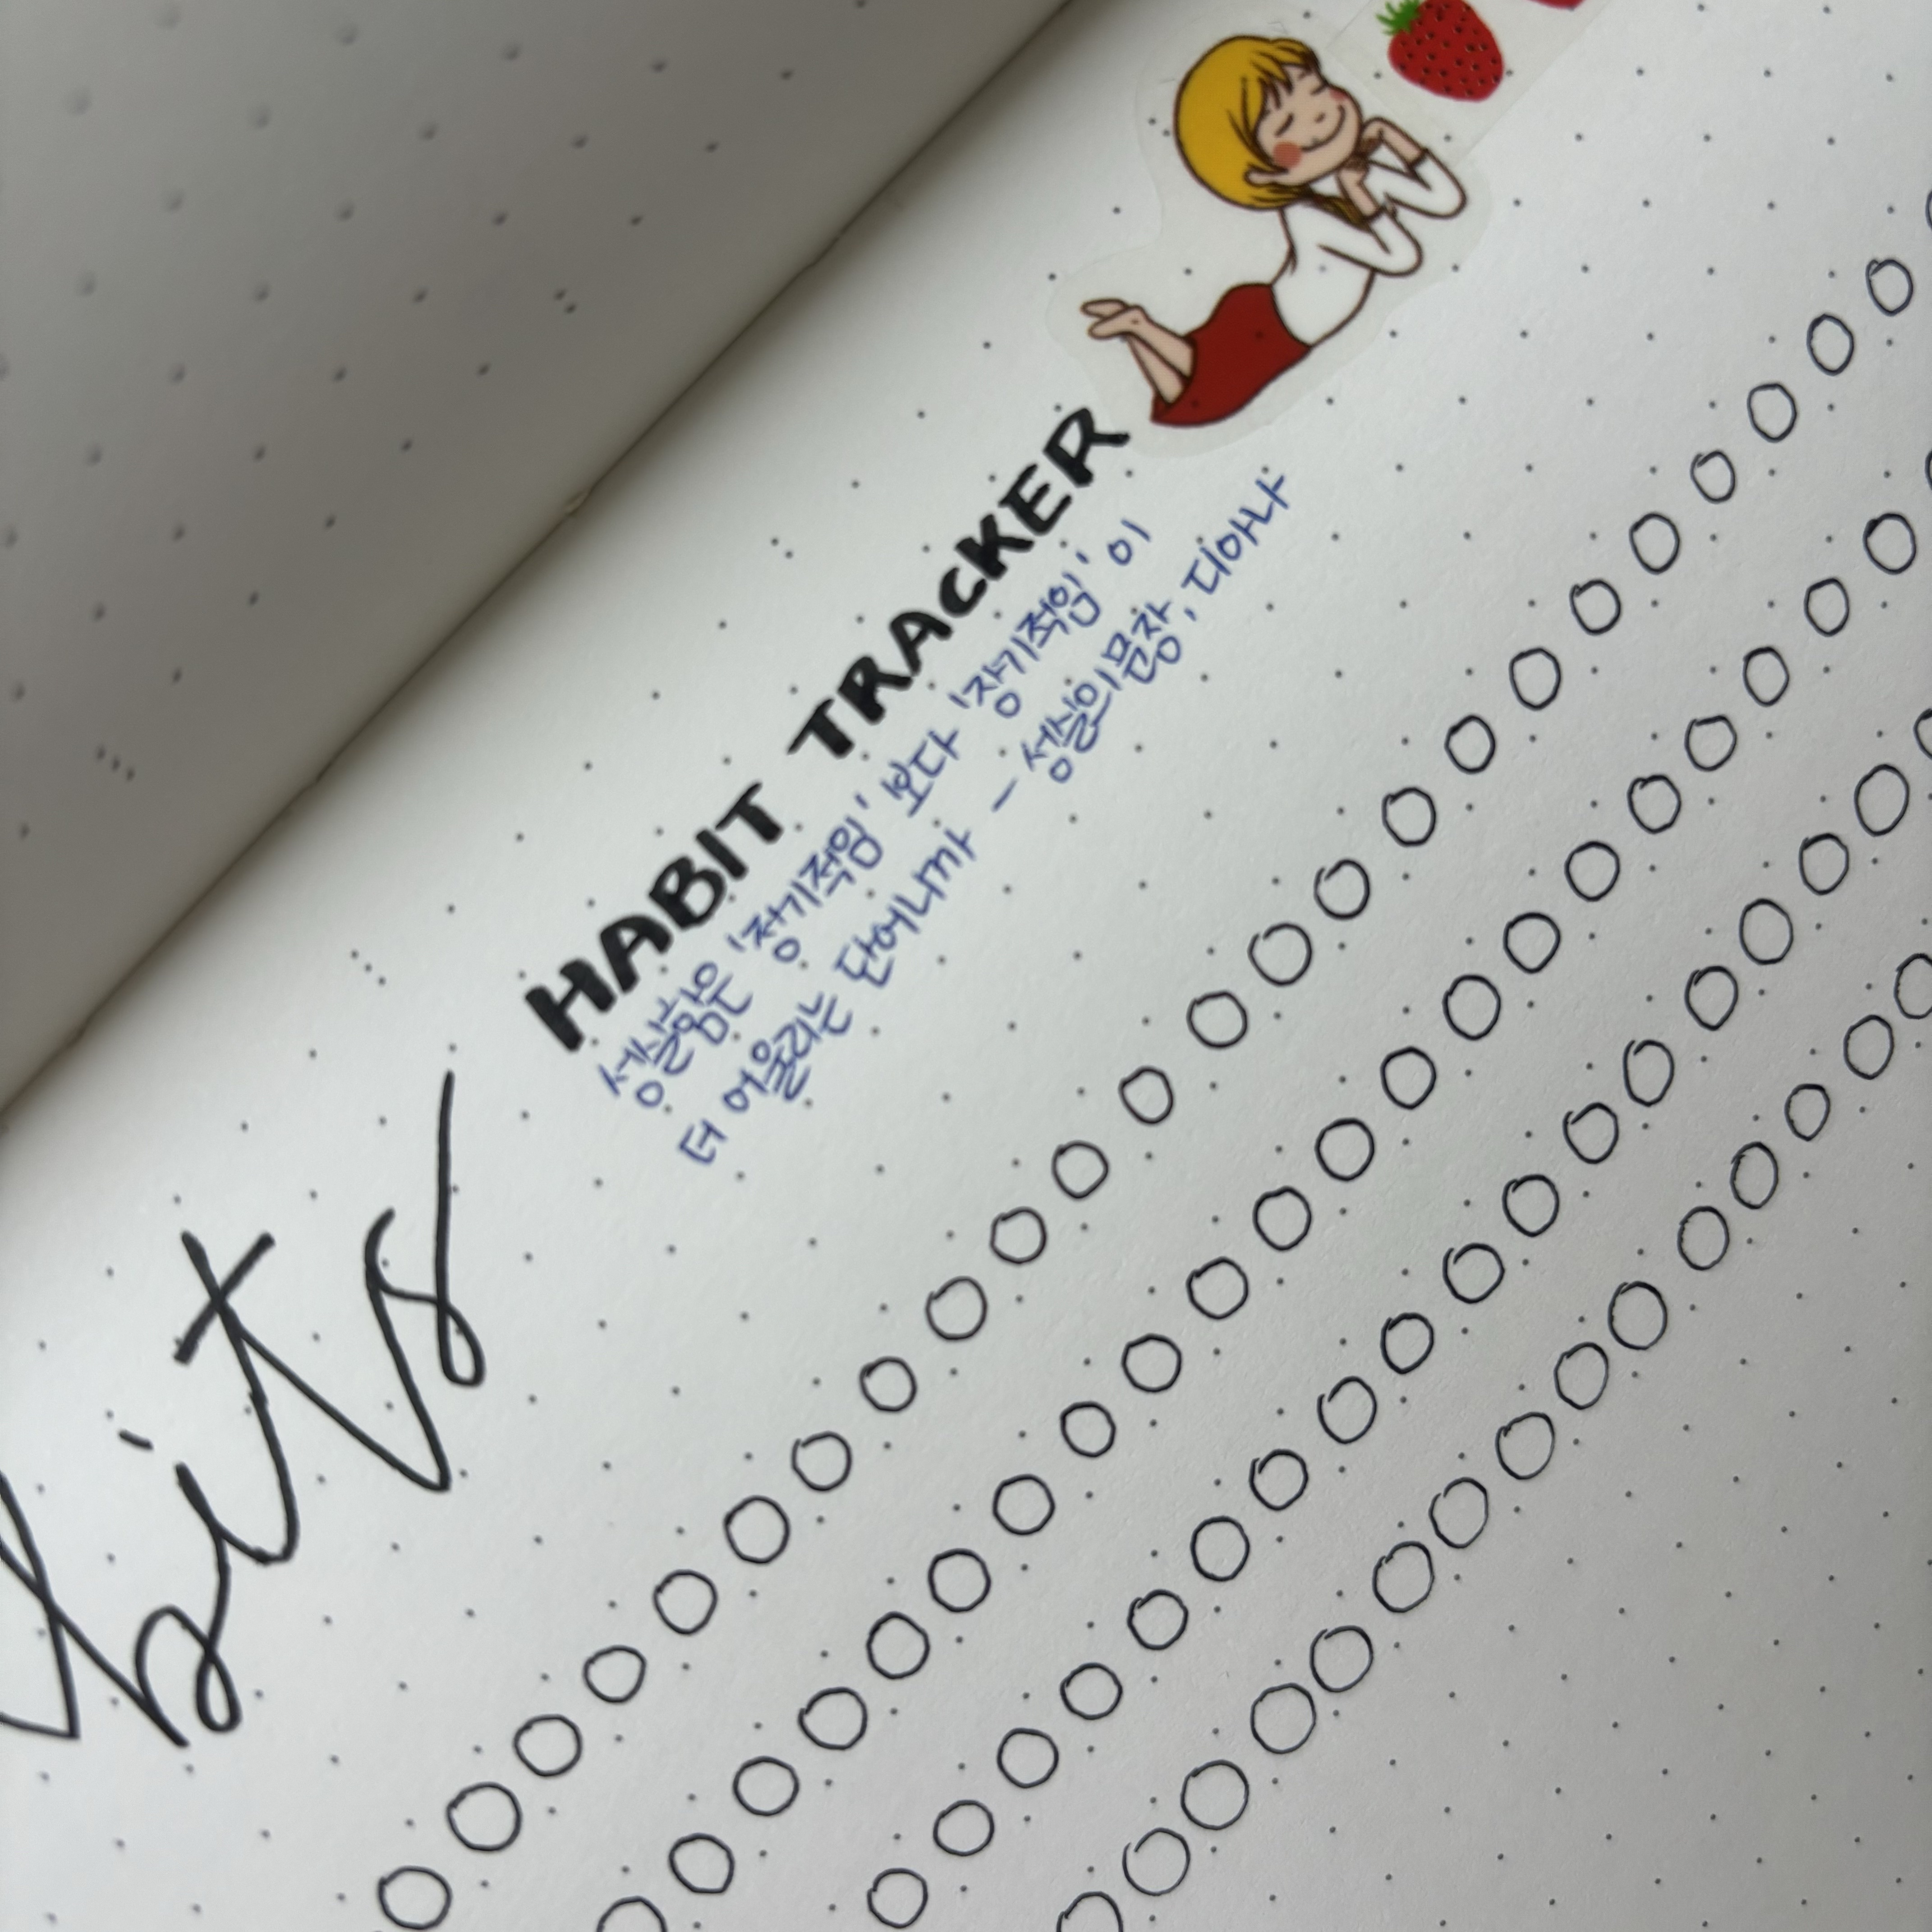 HABIT TRACKER
성실함은 '정기적임' 보다 '장기적임' 이
더 어울리는 단어니까 - 성실의 문장, 디아나
bits